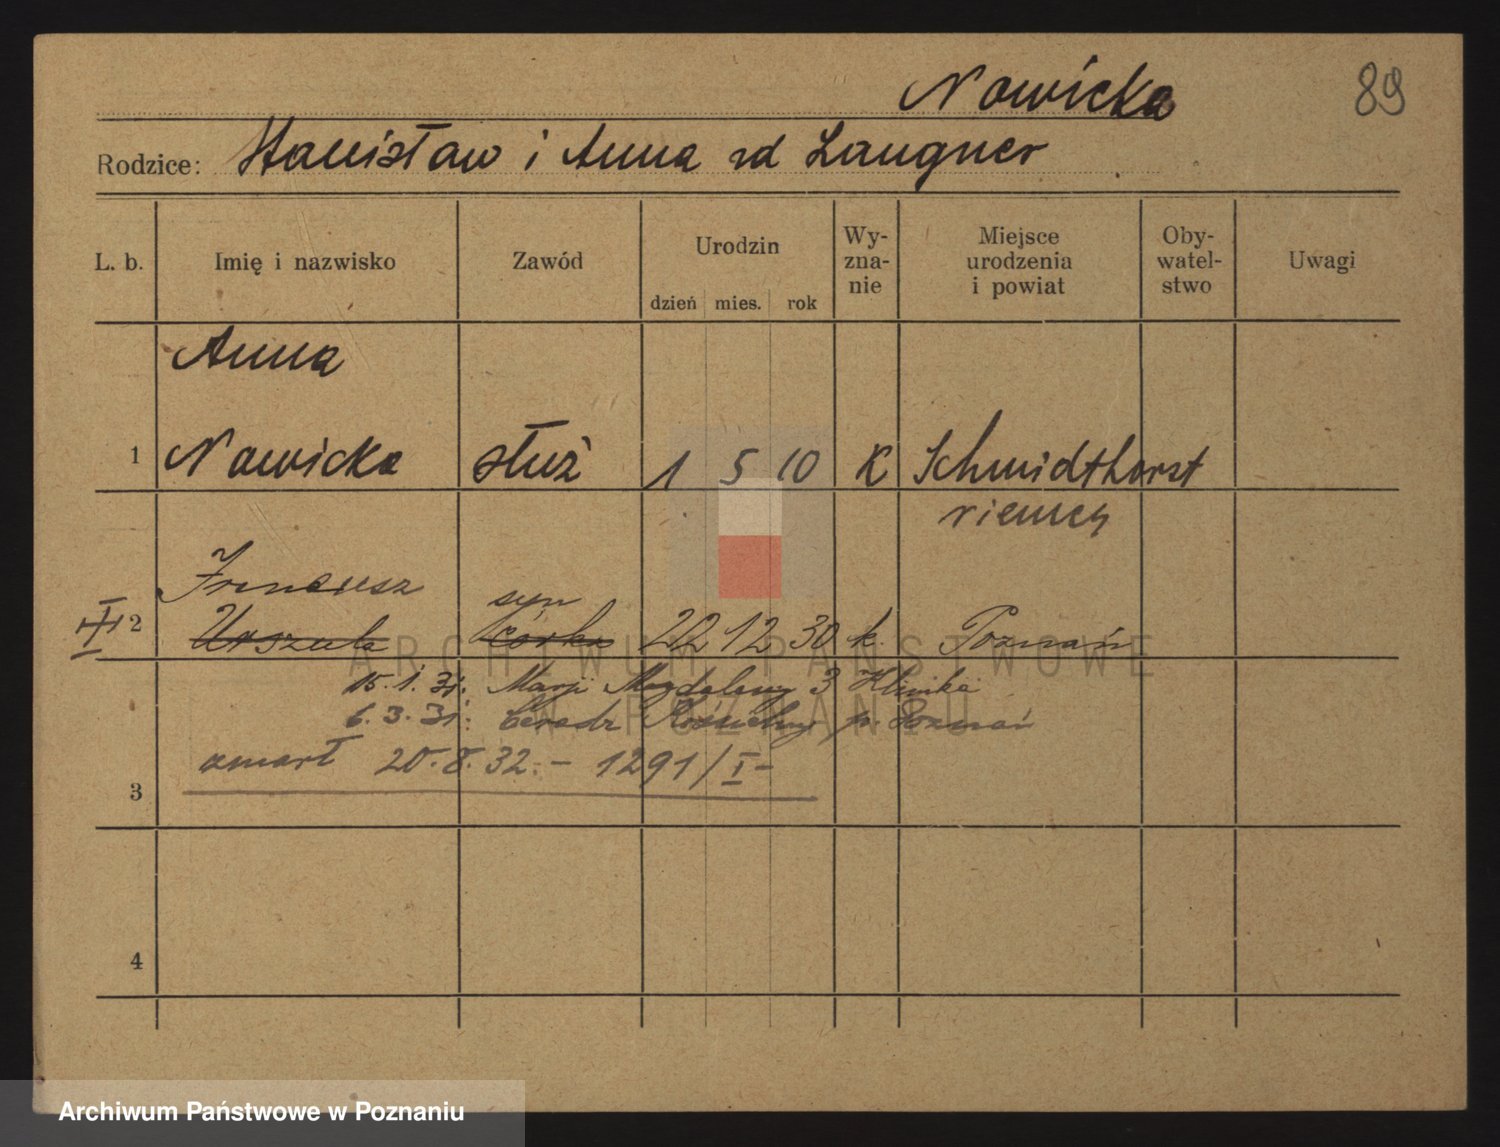 Nowicka
89
Rodzice: Stanisław i Anna zd Langner
L. b. Imię i nazwisko Zawód Urodzin dzień mies. rok Wy-zna-nie Miejsce urodzenia i powiat Oby-watel-stwo Uwagi
Anna
1 Nowicka służ 1 5 10 K Schmidthorst
niemcy
syn
2 Urszula córka 22 12 30 k. Poznań
15.1.31. Marji Magdaleny 3 Klinika
6.3.31. p. Poznań
zmarł 20.8.32.- 1291/I-
3
4
ARCHIWUM PAŃSTWOWE
W POZNANIU
Archiwum Państwowe w Poznaniu